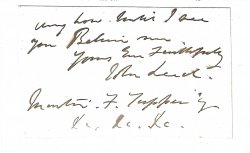 any how. Until I see
you Believe me
Yours Ever Faithfully
John Leech.
Martin F. Tupper Esq
&c. &c. &c.